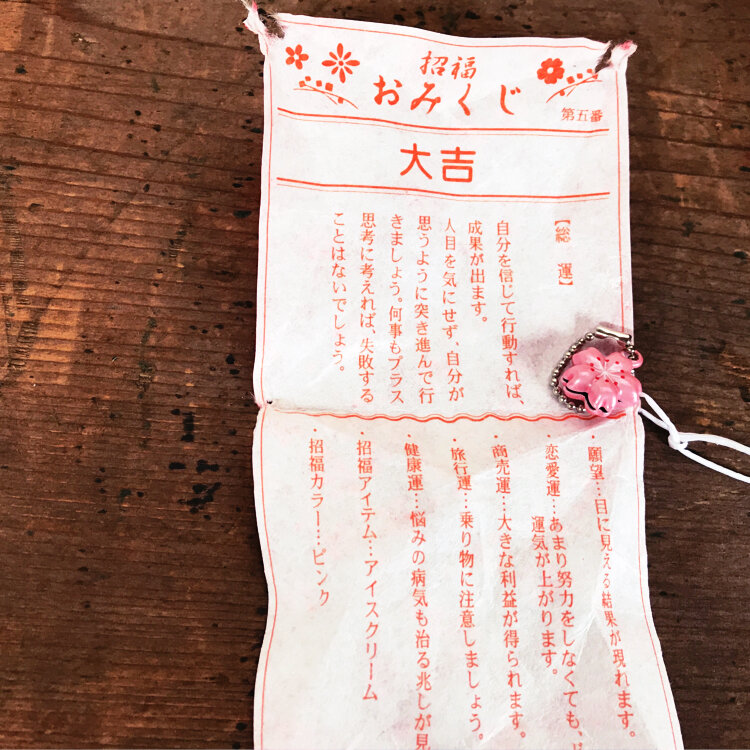 招福
おみくじ
第五番
大吉
【総運】
自分を信じて行動すれば、
成果が出ます。
人目を気にせず、自分が
思うように突き進んで行
きましょう。何事もプラス
思考に考えれば、失敗する
ことはないでしょう。
・願望…目に見える結果が現れます。
・恋愛運…あまり努力をしなくても、
運気が上がります。
・商売運…大きな利益が得られます。
・旅行運…乗り物に注意しましょう。
・健康運…悩みの病気も治る兆しが見
・招福アイテム…アイスクリーム
・招福カラー…ピンク